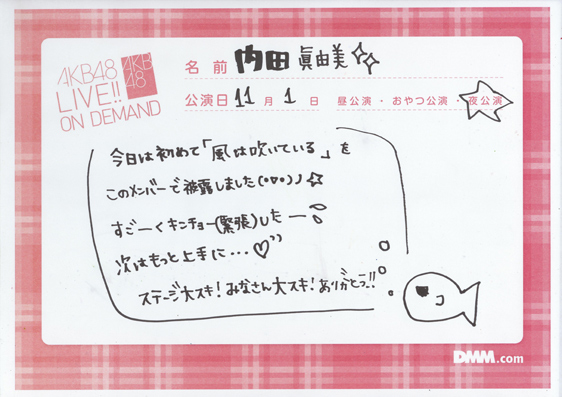 AKB48
LIVE!!
ON DEMAND
AKB
48
名前 内田眞由美
公演日 11月1日 昼公演・おやつ公演・夜公演
今日は初めて「風は吹いている」を
このメンバーで披露しました(°▽°)ノ☆
すごーくキンチョー(緊張)したー
次はもっと上手に...♡"
ステージ大スキ!みなさん大スキ!ありがとっ!!
DMM.com